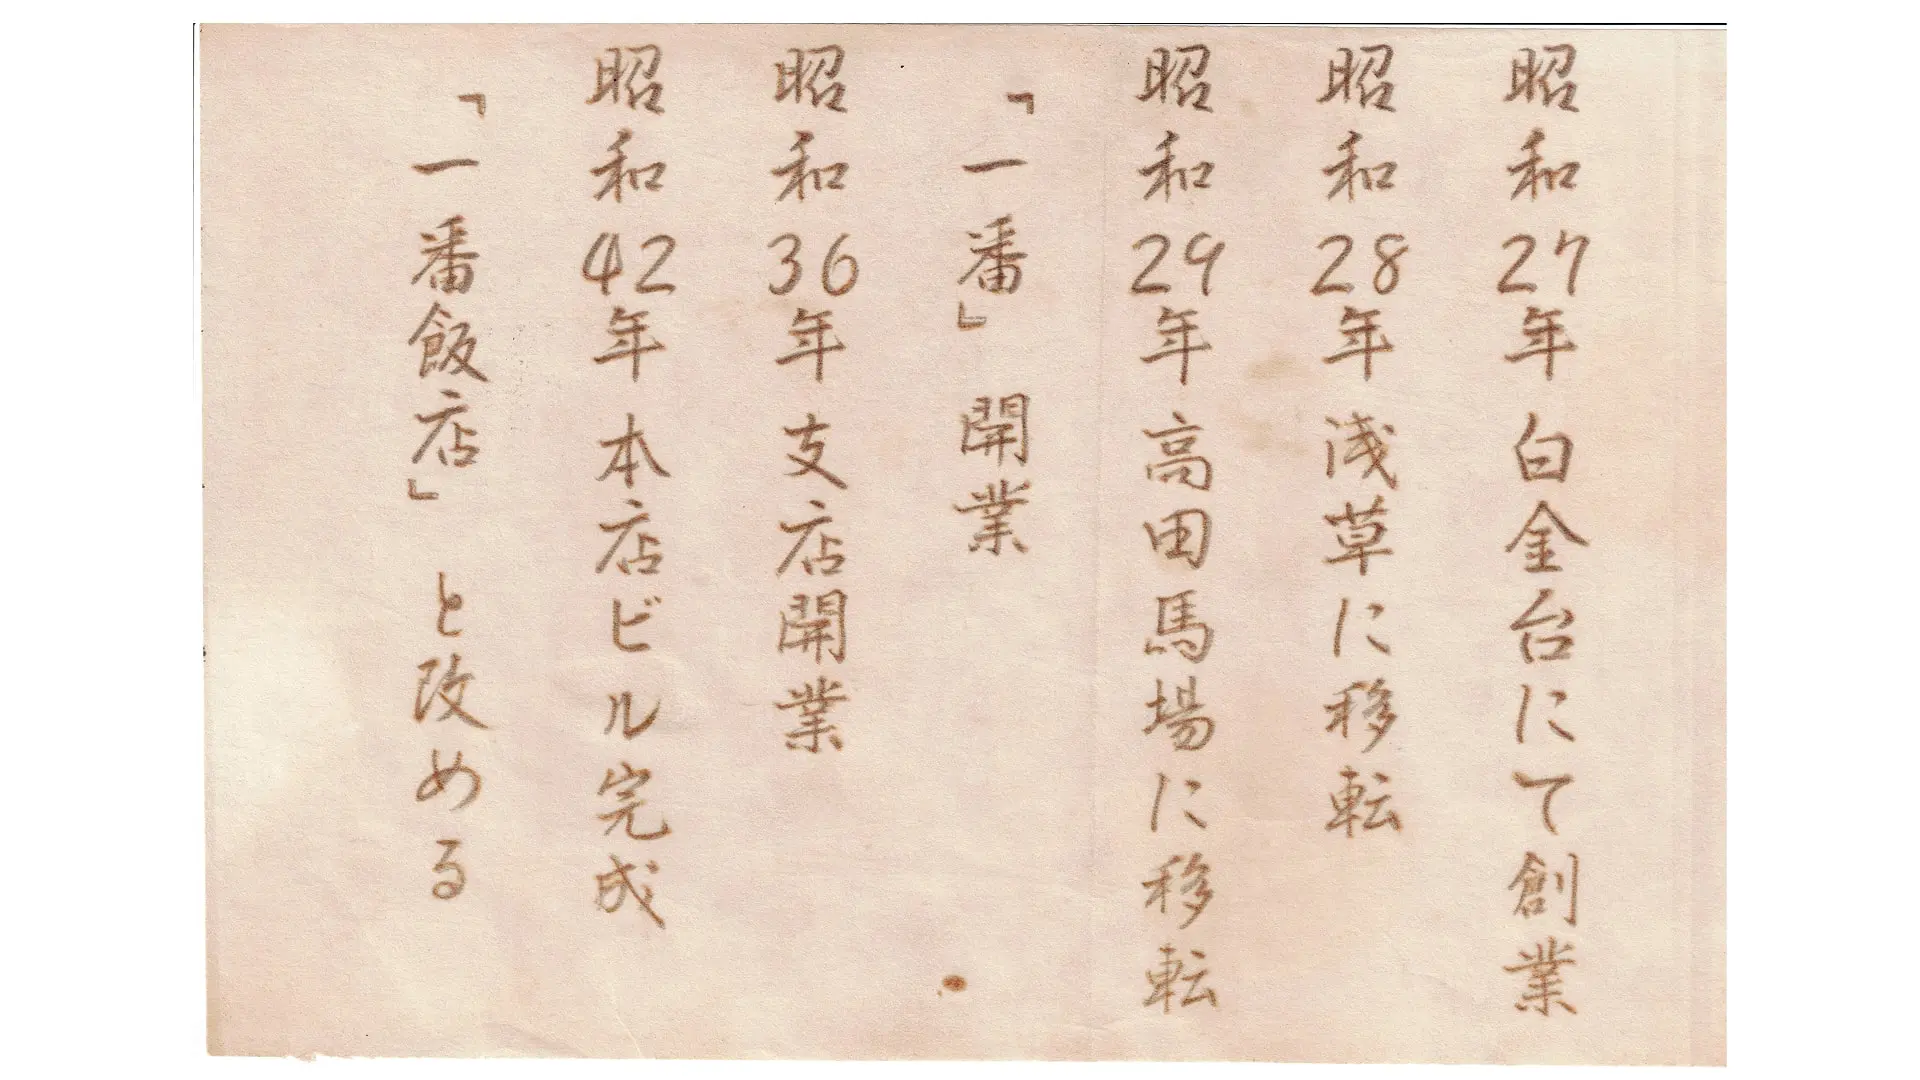 昭和27年 白金台にて創業
昭和28年 浅草に移転
昭和29年 高田馬場に移転
「一番」開業
昭和36年 支店開業
昭和42年 本店ビル完成
「一番飯店」と改める